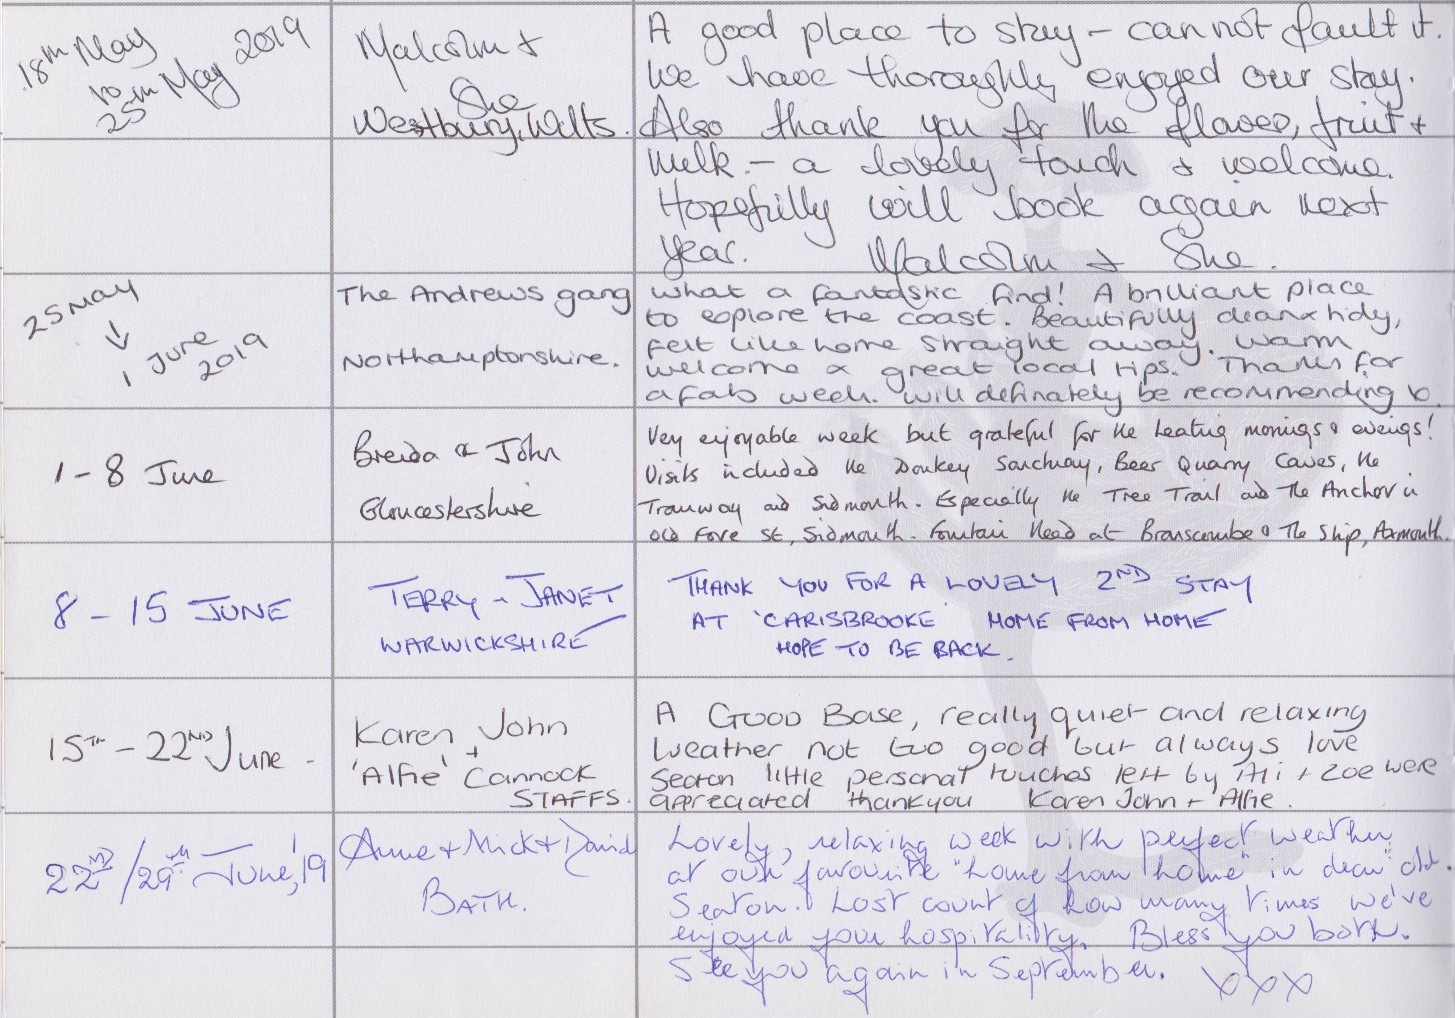 18th May
to
25th May 2019
Malcolm &
Sue
Westbury, Wilts.
A good place to stay - cannot fault it.
We have thoroughly enjoyed our stay.
Also thank you for the flowers, fruit +
milk - a lovely touch & welcome.
Hopefully will book again next
year. Malcolm & Sue.
25 May
↓
1 June
2019
The Andrews gang
Northamptonshire.
What a fantastic find! A brilliant place
to explore the coast. Beautifully clean & tidy,
felt like home straight away. Warm
welcome & great local tips. Thanks for
a fab week. Will definately be recommending
1 - 8 June
Brenda & John
Gloucestershire
Very enjoyable week but grateful for the heating mornings & evenings!
Visits included the Donkey Sanctuary, Beer Quarry Caves, the
Tramway and Sidmouth. Especially the Tree Trail and The Anchor in
Old Fore St, Sidmouth. Fountain Head at Branscombe & The Ship, Axmouth.
8 - 15 JUNE
TERRY - JANET
WARWICKSHIRE
THANK YOU FOR A LOVELY 2ND STAY
AT 'CARISBROOKE' HOME FROM HOME
HOPE TO BE BACK.
15TH - 22ND June -
Karen John
+
'Alfie' Cannock
STAFFS.
A GOOD BASE, really quiet and relaxing
Weather not too good but always love
Seaton little personal touches left by Ali + Zoe were
appreciated thankyou Karen John + 'Alfie'.
22nd/29th June, '19
Anne + Mick + David
BATH.
Lovely, relaxing week with perfect weather
at our favourite "home from home" in dear old
Seaton. Lost count of how many times we've
enjoyed your hospitality. Bless you both.
See you again in September. XXX